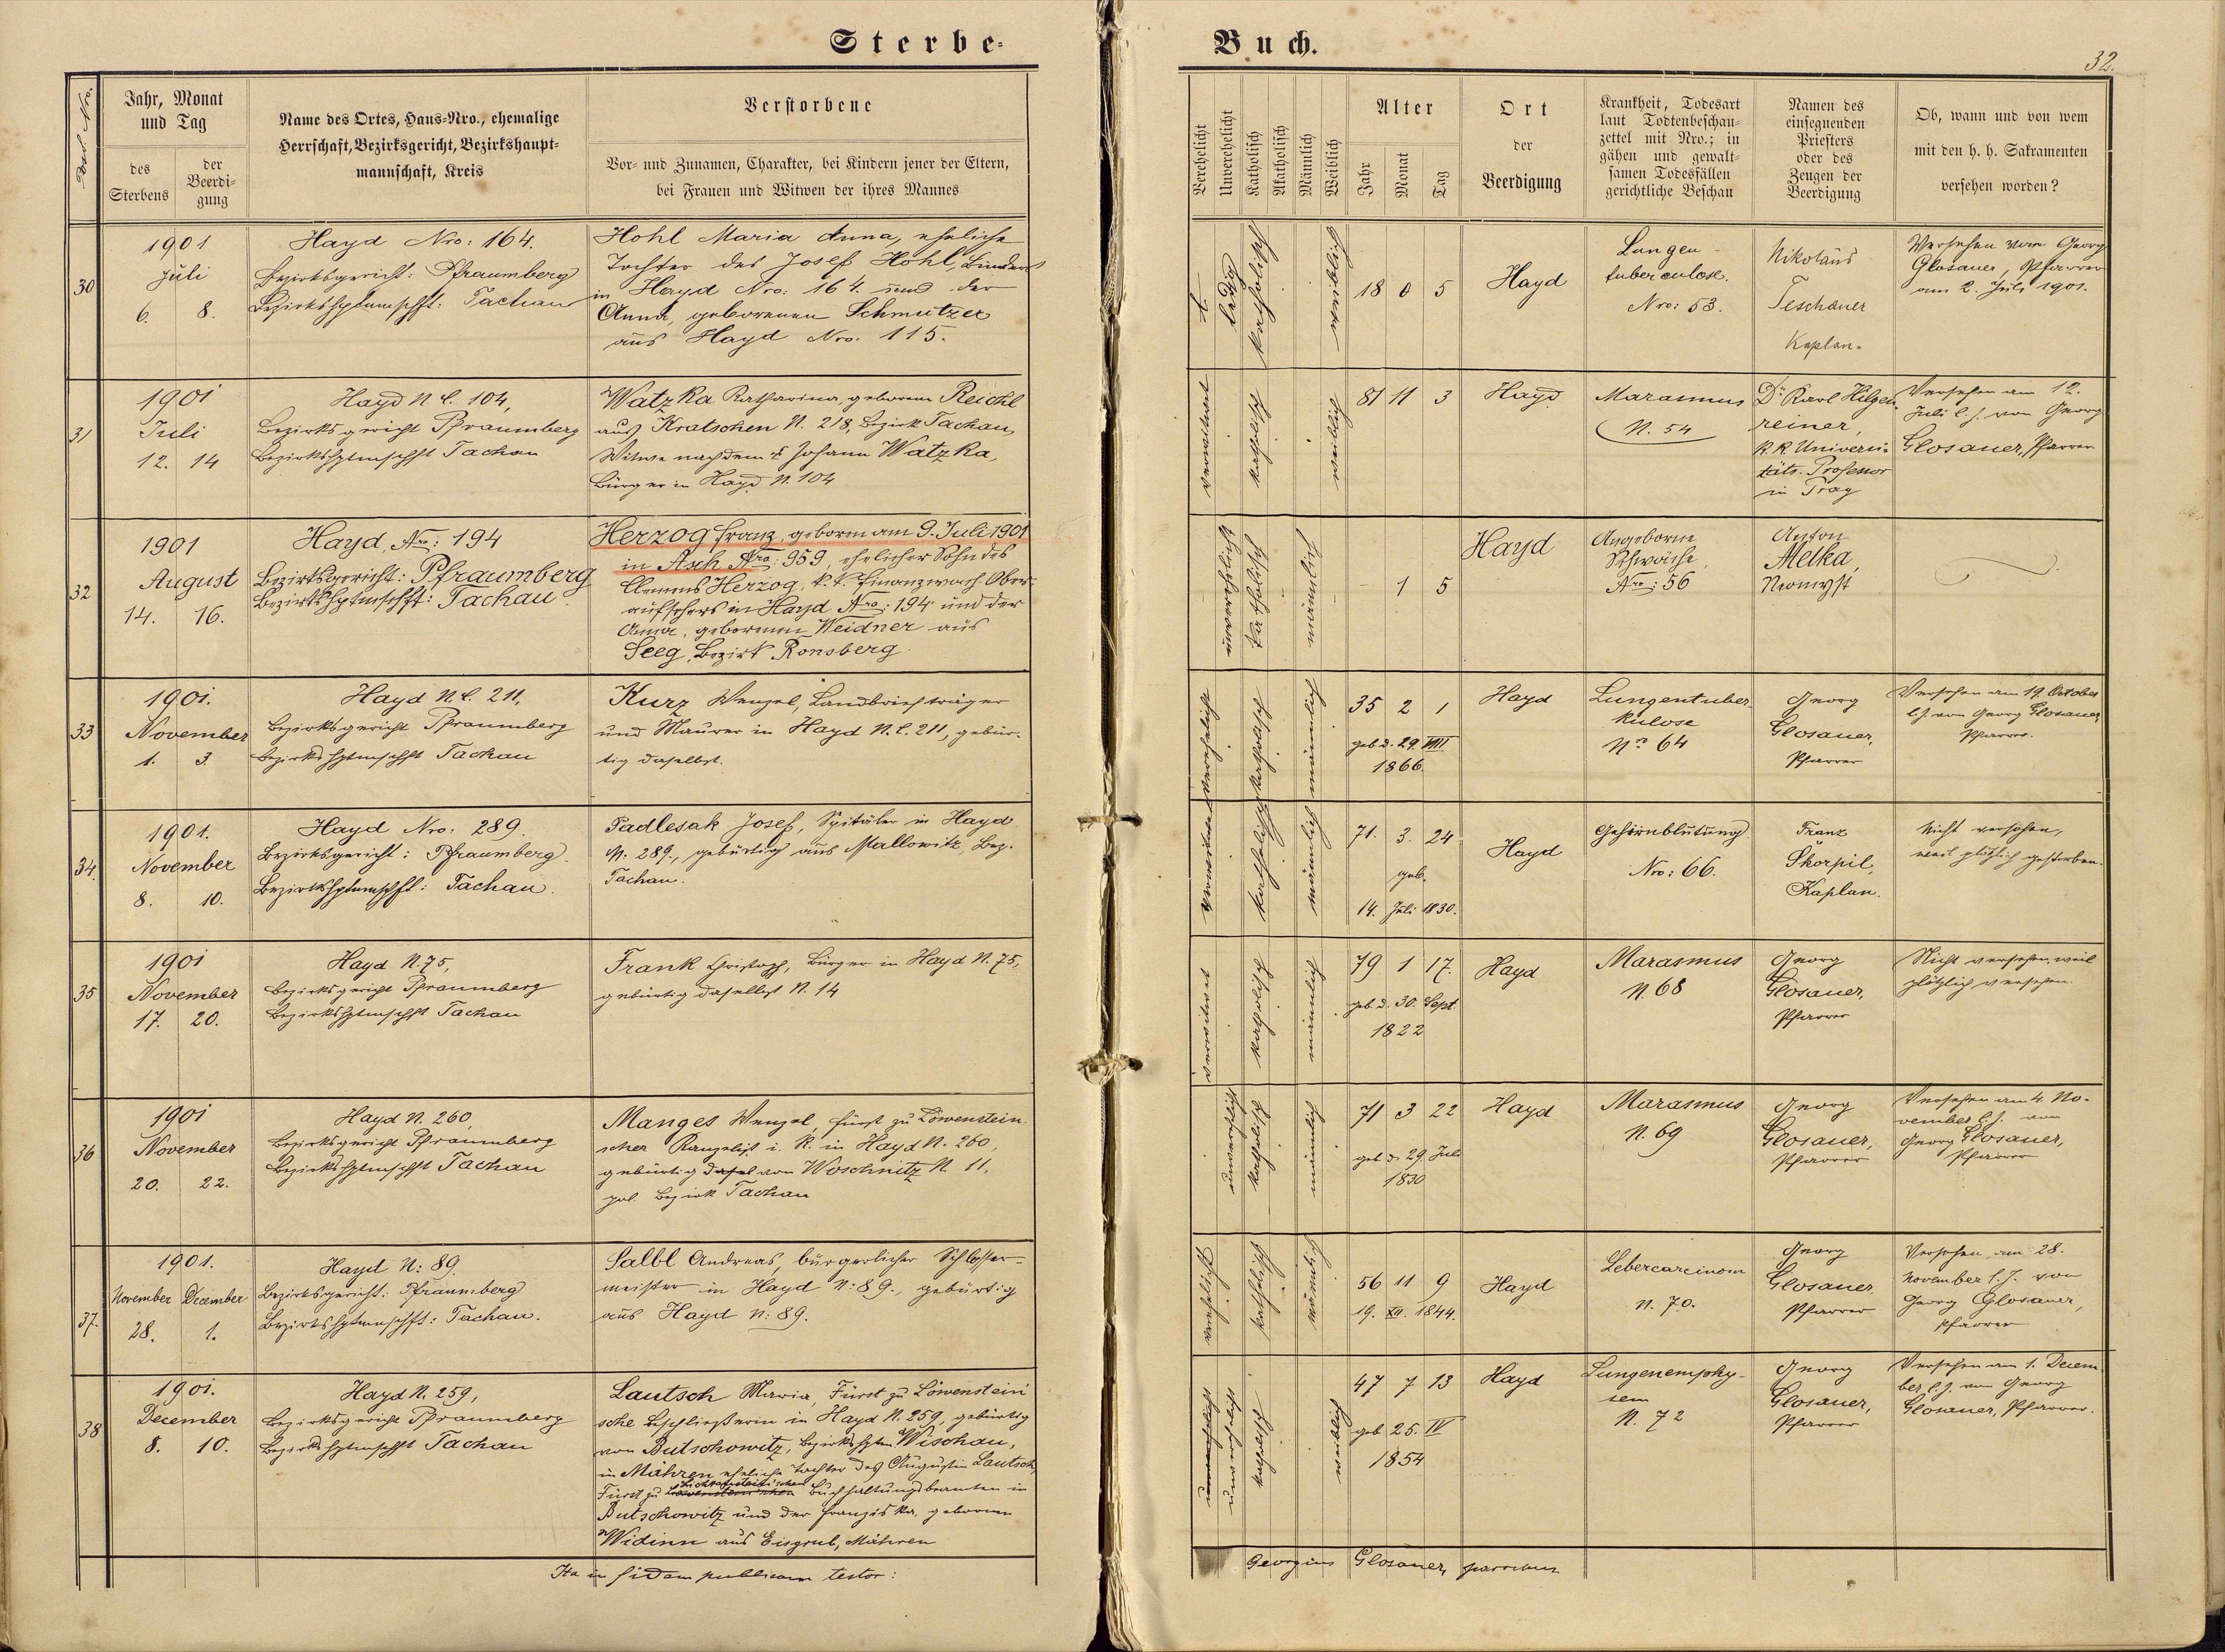 Sterbe-
Buch.
32.
Jahr, Monat
und Tag
des
Sterbens
der
Beerdi-
gung
Name des Ortes, Haus-Nro., ehemalige
Herrschaft, Bezirksgericht, Bezirkshaupt-
mannschaft, Kreis
Verstorbene
Vor- und Zunamen, Charakter, bei Kindern jener der Eltern,
bei Frauen und Witwen der ihres Mannes
Verehelicht
Unverehelicht
Katholisch
Akatholisch
Männlich
Weiblich
Alter
Jahr
Monat
Tag
Ort
der
Beerdigung
Krankheit, Todesart
laut Todtenbeschau-
zettel mit Nro.; in
gähen und gewalt-
samen Todesfällen
gerichtliche Beschau
Namen des
einsegnenden
Priesters
oder des
Zeugen der
Beerdigung
Ob, wann und von wem
mit den h. h. Sakramenten
versehen worden?
30
1901
Juli
6. 8.
Hayd Nro: 164.
Bezirksgericht: Pfraumberg
Bezirkshptmschft: Tachau
Hohl Maria Anna, eheliche
Tochter des Josef Hohl, Binders
in Hayd Nro: 164 und der
Anna, geborenen Schmutzer
aus Hayd Nro: 115.
ledig
katholisch
weiblich
18 0 5
Hayd
Lungen-
tuberculose.
Nro: 53.
Nikolaus
Teschauer
Kaplan.
Versehen vom Georg
Glosauer, Pfarrer
am 2. Juli 1901.
31
1901
Juli
12. 14
Hayd N. C. 104,
Bezirksgericht Pfraumberg
Bezirkshptmschft Tachau
Watzka Katharina, geborene Reichl
aus Kratschen N. 218, Bezirk Tachau,
Witwe nach dem † Johann Watzka,
Bürger in Hayd N. 104
verwitwet
katholisch
weiblich
81 11 3
Hayd
Marasmus
N. 54
Dr Karl Hilgen-
reiner,
k. k. Universi-
täts. Professor
in Prag
Versehen am 12.
Juli l. J. von Georg
Glosauer, Pfarrer
32
1901
August
14. 16.
Hayd, Nro: 194
Bezirksgericht: Pfraumberg
Bezirkshptmschft: Tachau.
Herzog Franz, geboren am 9. Juli 1901
in Asch Nro: 959, ehelicher Sohn des
Clemens Herzog, k. k. Finanzwach Ober-
aufsehers in Hayd Nro: 194 und der
Anna, geborenen Weidner aus
Seeg, Bezirk Ronsberg.
unverehelicht
katholisch
männlich
- 1 5
Hayd
Angeborene
Schwäche,
Nro: 56
Anton
Melka,
Neomyst
33
1901.
November
1. 3.
Hayd N. C. 211,
Bezirksgericht Pfraumberg
Bezirkshptmschft Tachau
Kurz Wenzel, Landbriefträger
und Maurer in Hayd N. C. 211, gebür-
tig daselbst.
verehelicht
katholisch
männlich
35 2 1
geb. d. 29. VIII
1866.
Hayd
Lungentuber-
kulose
No 64
Georg
Glosauer,
Pfarrer
Versehen am 19. October
l. J. von Georg Glosauer,
Pfarrer.
34.
1901.
November
8. 10.
Hayd Nro: 289.
Bezirksgericht: Pfraumberg.
Bezirkshptmschft: Tachau.
Padlesak Josef, Spitäler in Hayd
N: 289., gebürtig aus Mallowitz, Bez.
Tachau.
verwitwet
katholisch
männlich
71. 3. 24
geb.
14. Juli 1830.
Hayd
Gehirnblutung.
Nro: 66.
Franz
Škorpil,
Kaplan.
Nicht versehen,
weil plötzlich gestorben.
35
1901
November
17. 20.
Hayd N. 75,
Bezirksgericht Pfraumberg
Bezirkshptmschft Tachau
Frank Christoph, Bürger in Hayd N. 75,
gebürtig daselbst N. 14
verwitwet
katholisch
männlich
79 1 17.
geb. d. 30. Sept.
1822
Hayd
Marasmus
N. 68
Georg
Glosauer,
Pfarrer
Nicht versehen, weil
plötzlich versehen.
36
1901
November
20. 22.
Hayd N. 260,
Bezirksgericht Pfraumberg
Bezirkshptmschft Tachau
Manges Wenzel, fürst zu Löwenstein-
scher Kanzelist i. R. in Hayd N. 260,
gebürtig dasel von Woschnitz N. 11,
pol. Bezirk Tachau
unverehelicht
katholisch
männlich
71 3 22
geb. d. 29. Juli
1830
Hayd
Marasmus
N. 69
Georg
Glosauer,
Pfarrer
Versehen am 4. No-
vember l. J. von
Georg Glosauer,
Pfarrer
37.
1901.
November December
28. 1.
Hayd N: 89.
Bezirksgericht: Pfraumberg
Bezirkshptmschft: Tachau.
Salbl Andreas, bürgerlicher Schlosser-
meister in Hayd N: 89., gebürtig
aus Hayd N: 89.
verehelicht
katholisch
männlich
56 11 9
19. XII. 1844.
Hayd
Lebercarcinom
N. 70.
Georg
Glosauer,
Pfarrer
Versehen am 28.
November l. J. von
Georg Glosauer,
Pfarrer
38
1901.
December
8. 10.
Hayd N. 259,
Bezirksgericht Pfraumberg
Bezirkshptmschft Tachau
Lautsch Maria, Fürst zu Löwenstein'
sche Beschließerin in Hayd N. 259, gebürtig
von Butschowitz, Bezirkshptm Wischau,
in Mähren, eheliche Tochter des Augustin Lautsch,
Fürst zu Löwenstein'schen Liechtenstein'schen Buchhaltungsbeamten in
Butschowitz und der Franziska, geborene
Widinn aus Eisgrub, Mähren
unverehelicht
katholisch
weiblich
47 7 13
geb. 25. IV
1854
Hayd
Lungenemphy-
sem
N. 72
Georg
Glosauer,
Pfarrer
Versehen am 1. Decem-
ber l. J. von Georg
Glosauer, Pfarrer.
Ita in fidem publicam testor:
Georgius Glosauer, parochus